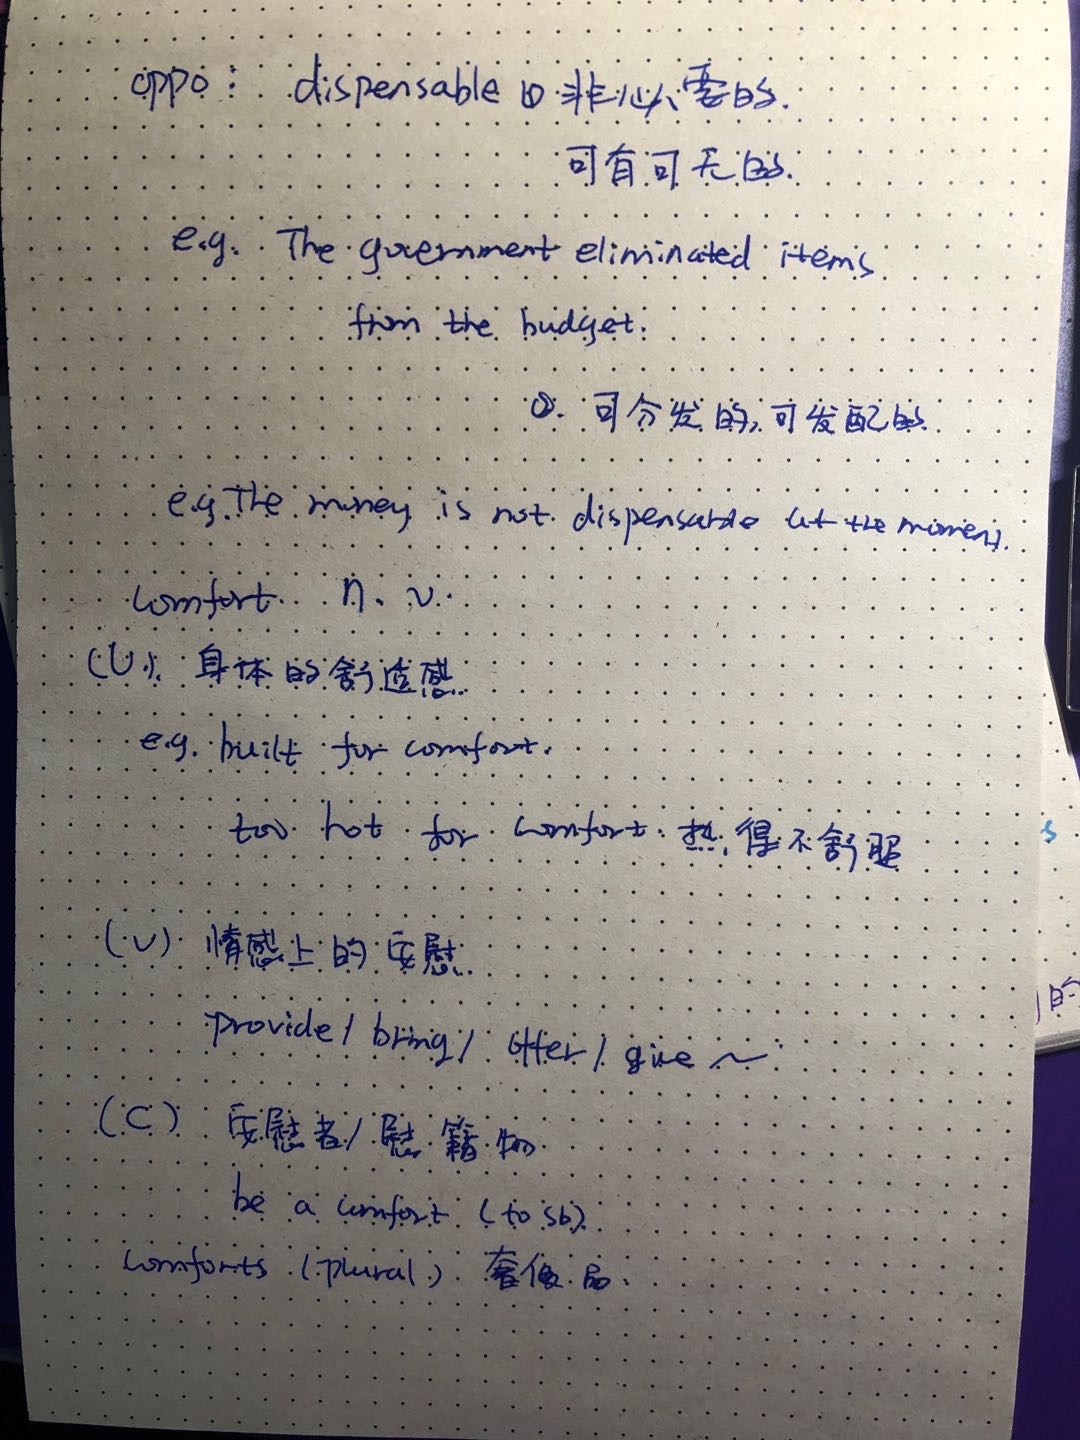 oppo: dispensable ① 非必需的.
可有可无的.
e.g. The government eliminated items
from the budget.
②. 可分发的, 可发配的
e.g. The money is not dispensable at the moment.
comfort n. v.
(U). 身体的舒适感.
e.g. built for comfort.
too hot for comfort. 热得不舒服
(U) 情感上的安慰.
provide / bring / offer / give ~
(C) 安慰者/慰籍物.
be a comfort (to sb)
comforts (plural) 奢侈品.
s
的